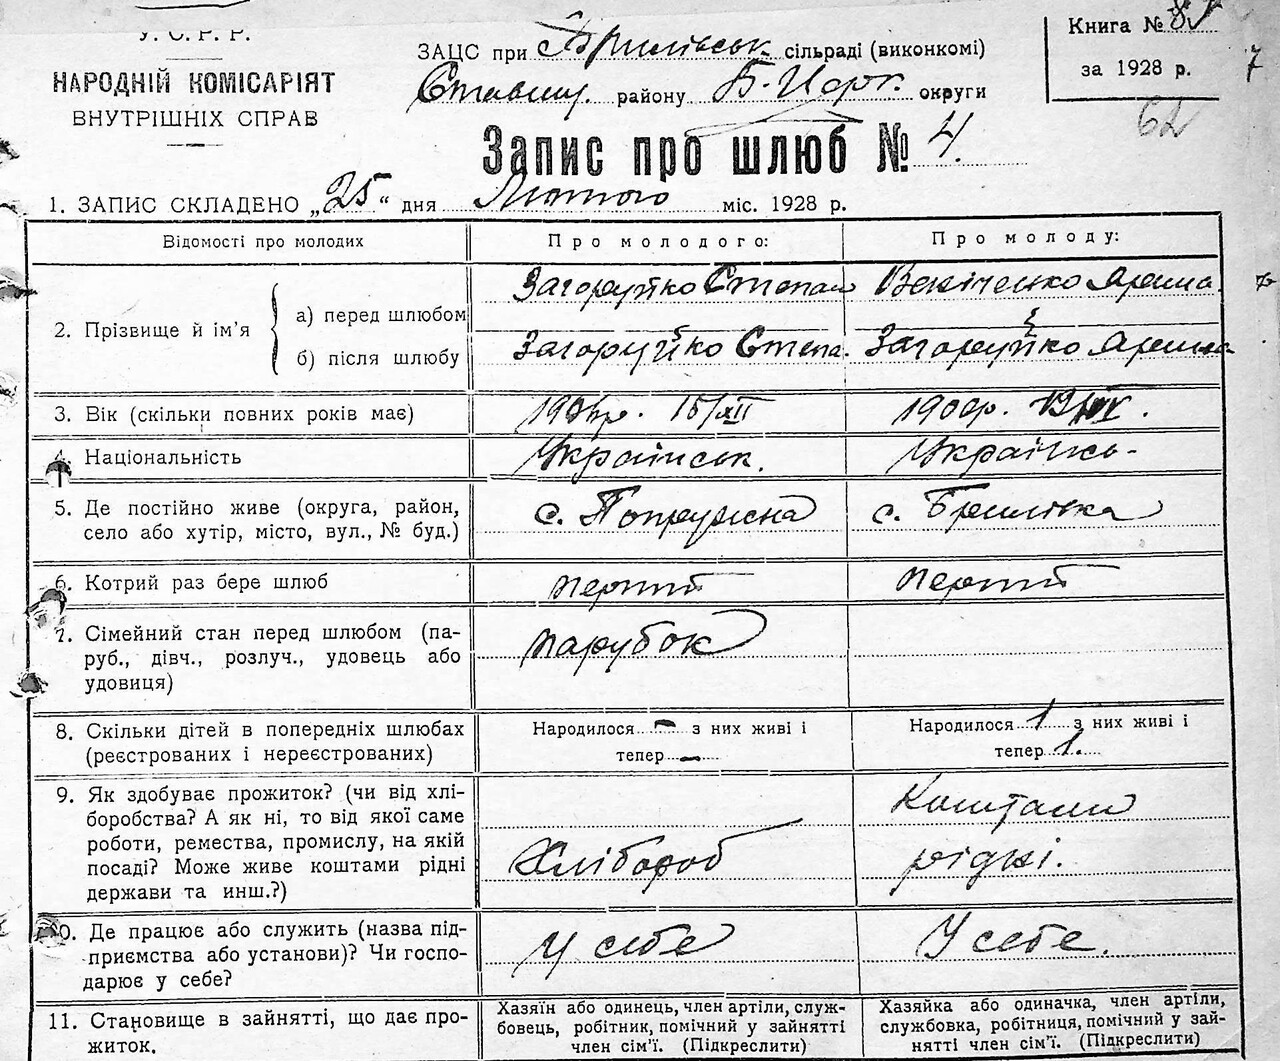 У. С. Р. Р.
НАРОДНІЙ КОМІСАРІЯТ
ВНУТРІШНІХ СПРАВ
ЗАЦС при Брилівськ. сільраді (виконкомі)
Ставищ. району Б-Церк. округи
Книга №
за 1928 р.
7
62
Запис про шлюб № 4.
1. ЗАПИС СКЛАДЕНО „25“ дня Лютого міс. 1928 р.
Відомості про молодих
Про молодого:
Про молоду:
2. Прізвище й ім’я
а) перед шлюбом
Загоруйко Степан
Ярина
б) після шлюбу
Загоруйко Степа.
Загоруйко Ярина
3. Вік (скільки повних років має)
15/XII
1900р.
4. Національність
Українськ.
Українсь-
5. Де постійно живе (округа, район,
село або хутір, місто, вул., № буд.)
с. Попружна
с. Брилівка
6. Котрий раз бере шлюб
перший
перший
7. Сімейний стан перед шлюбом (па-
руб., дівч., розлуч., удовець або
удовиця)
парубок
8. Скільки дітей в попередніх шлюбах
(реєстрованих і нереєстрованих)
Народилося – з них живі і
тепер –
Народилося 1 з них живі і
тепер 1.
9. Як здобуває прожиток? (чи від хлі-
боробства? А як ні, то від якої саме
роботи, ремества, промислу, на якій
посаді? Може живе коштами рідні
держави та инш.?)
Хлібороб
Коштами
рідні.
10. Де працює або служить (назва під-
приємства або установи)? Чи госпо-
дарює у себе?
У себе
У себе.
11. Становище в зайнятті, що дає про-
житок.
Хазяїн або одинець, член артіли, служ-
бовець, робітник, помічний у зайнятті
член сім’ї. (Підкреслити)
Хазяйка або одиначка, член артіли,
службовка, робітниця, помічний у зай-
нятті член сім’ї. (Підкреслити)